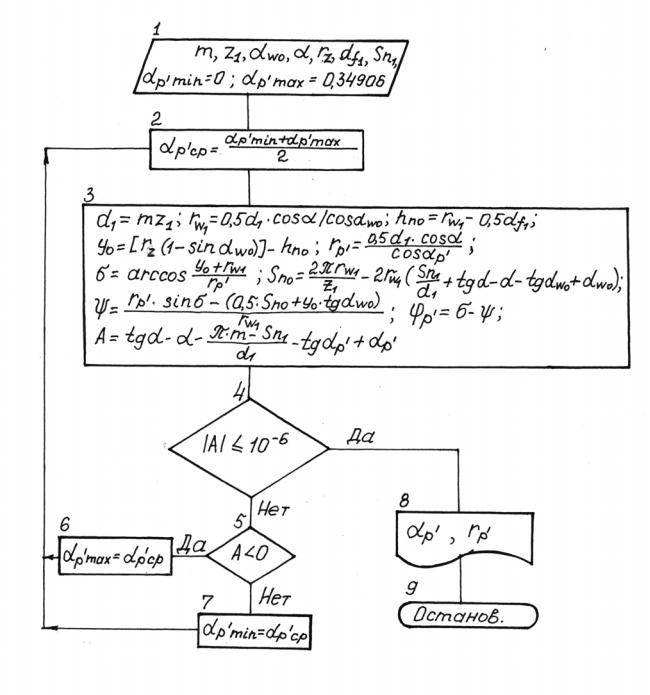 1
m, z₁, αwo, α, r𝓏, df₁, Sn₁,
αp'min=0 ; αp'max = 0,34906
2
αp'cp = (αp'min+αp'max)/2
3
d₁ = mz₁; rw₁=0,5d₁·cosα/cosαwo; hno=rw₁-0,5df₁;
yo=[r𝓏(1-sinαwo)]-hno; rp'=(0,5d₁·cosα)/(cosαp');
σ= arccos (yo+rw₁)/rp' ; Sno=2πrw₁/z₁-2rw₁(Sn₁/d₁+tgα-α-tgαwo+αwo);
ψ=(rp'·sinσ-(0,5·Sno+yo·tgαwo))/rw₁; φp'=σ-ψ;
A=tgα-α-(π·m-Sn₁)/d₁-tgαp'+αp'
4
|A|≤10⁻⁶
Да
Нет
5
A<0
Да
Нет
6
αp'max=αp'cp
7
αp'min=αp'cp
8
αp' , rp'
9
Останов.